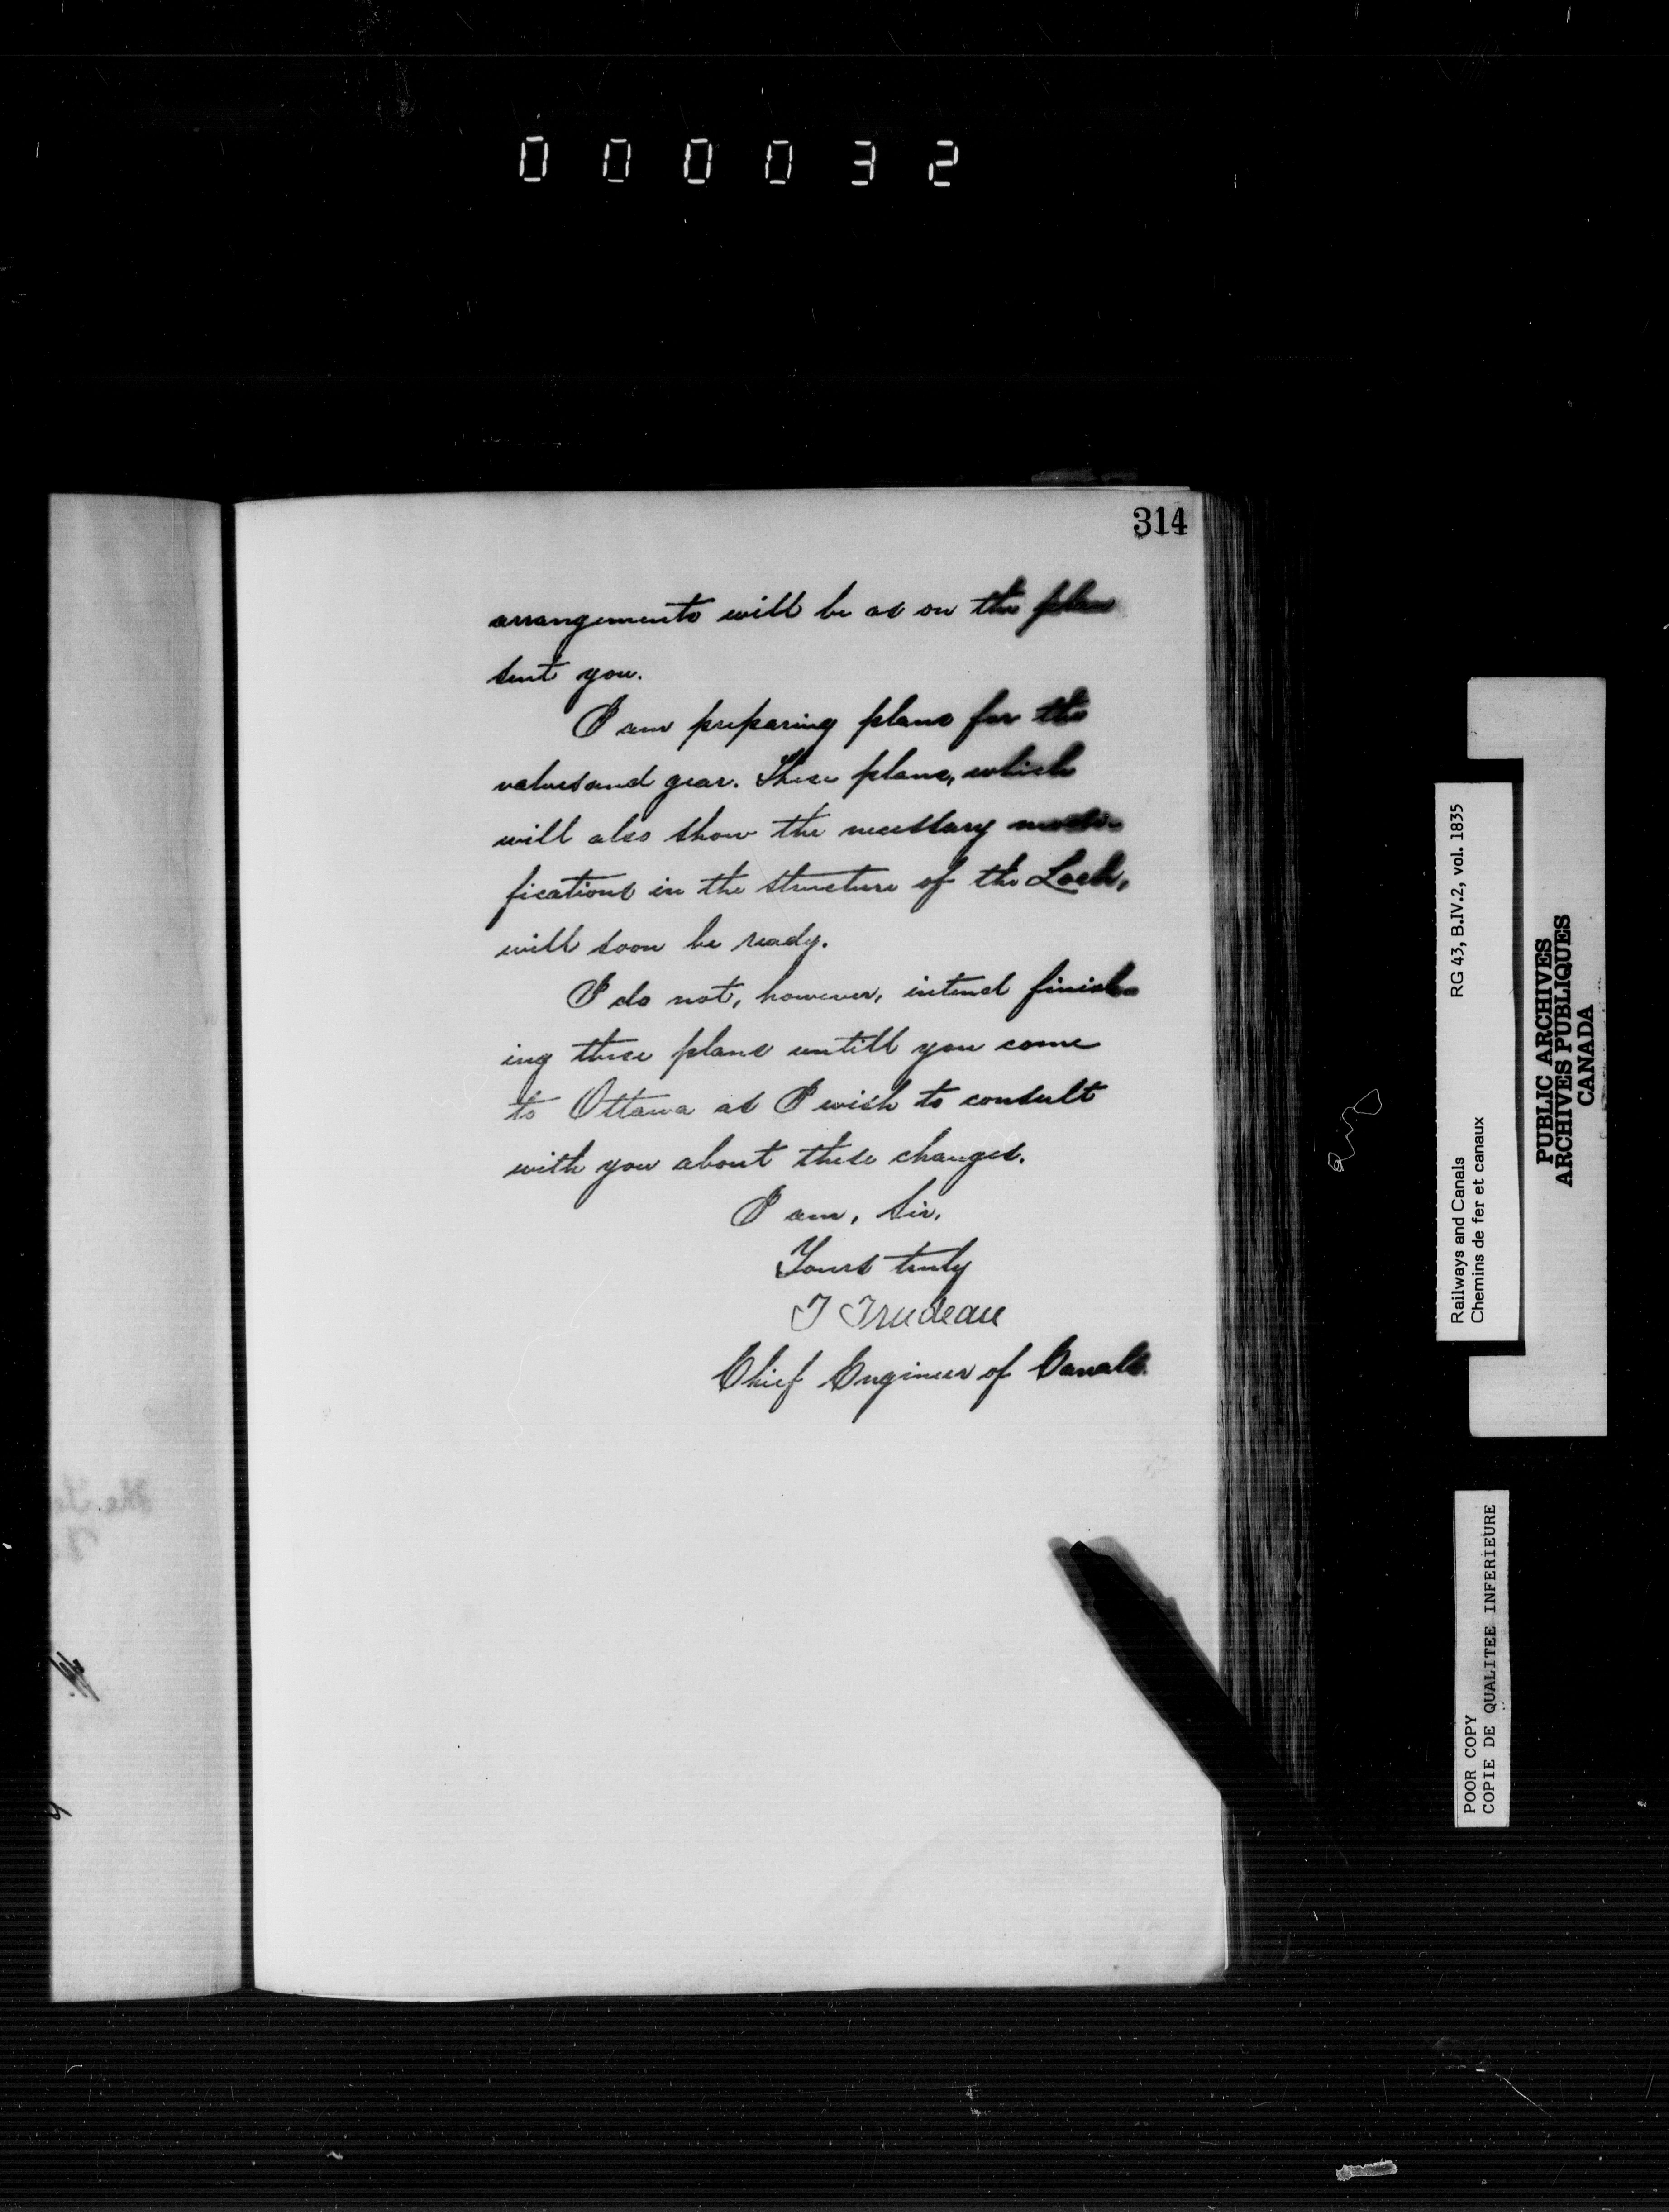 000032
314
arrangements will be as on the plan
sent you.
I am preparing plans for the
valves and gear. These plans, which
will also show the necessary modi-
fications in the structure of the Lock,
will soon be ready.
I do not, however, intend finish-
ing these plans untill you come
to Ottawa as I wish to consult
with you about these changes.
I am, Sir,
Yours truly
T Trudeau
Chief Engineer of Canals.
Railways and Canals RG 43, B.IV.2, vol. 1835
Chemins de fer et canaux
PUBLIC ARCHIVES
ARCHIVES PUBLIQUES
CANADA
POOR COPY
COPIE DE QUALITEE INFERIEURE